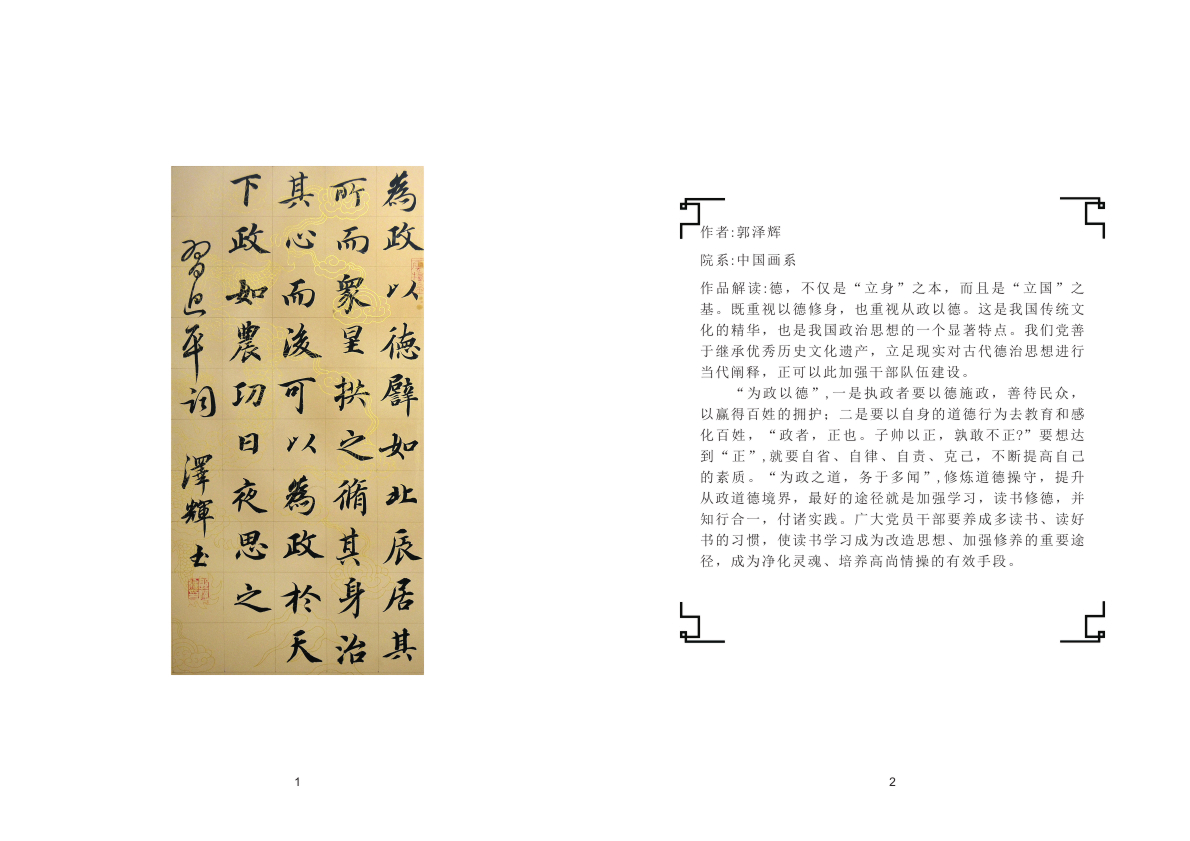 為政以德譬如北辰居其
所而眾星拱之脩其身治
其心而後可以為政於天
下政如農功日夜思之
習近平詞 澤輝书
作者:郭泽辉
院系:中国画系
作品解读:德，不仅是“立身”之本，而且是“立国”之
基。既重视以德修身，也重视从政以德。这是我国传统文
化的精华，也是我国政治思想的一个显著特点。我们党善
于继承优秀历史文化遗产，立足现实对古代德治思想进行
当代阐释，正可以此加强干部队伍建设。
“为政以德”,一是执政者要以德施政，善待民众，
以赢得百姓的拥护；二是要以自身的道德行为去教育和感
化百姓，“政者，正也。子帅以正，孰敢不正?”要想达
到“正”,就要自省、自律、自责、克己，不断提高自己
的素质。“为政之道，务于多闻”,修炼道德操守，提升
从政道德境界，最好的途径就是加强学习，读书修德，并
知行合一，付诸实践。广大党员干部要养成多读书、读好
书的习惯，使读书学习成为改造思想、加强修养的重要途
径，成为净化灵魂、培养高尚情操的有效手段。
1
2